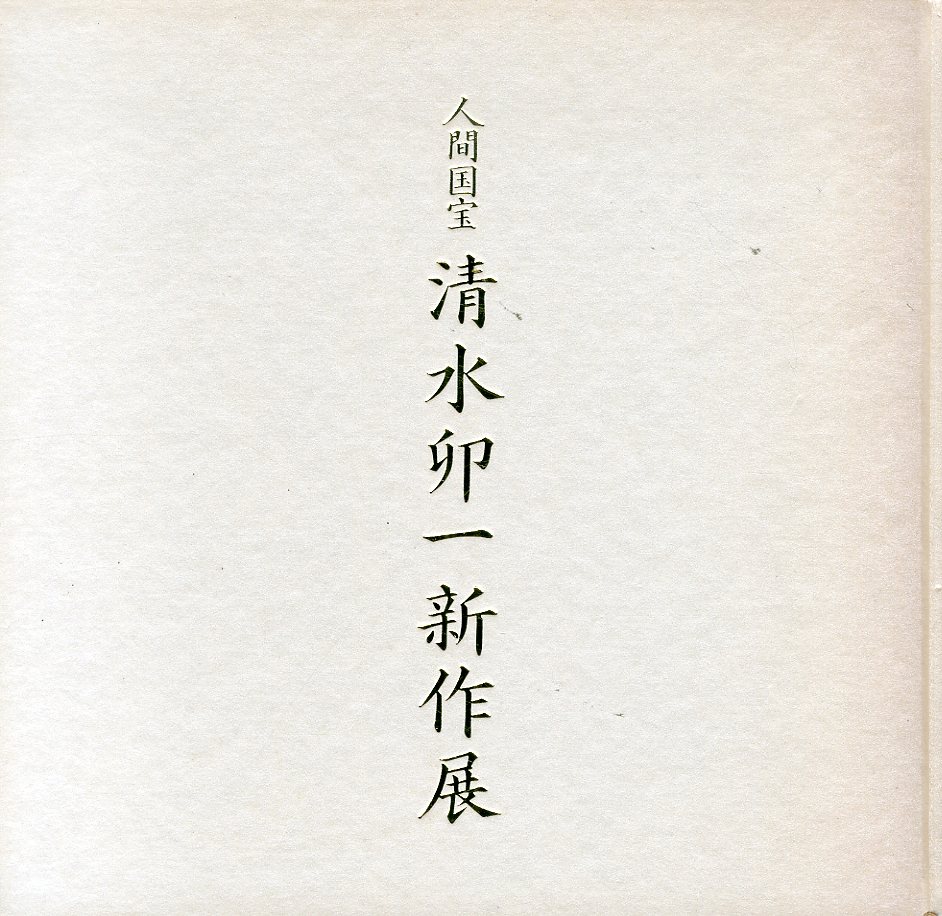 人間国宝 清水卯一新作展